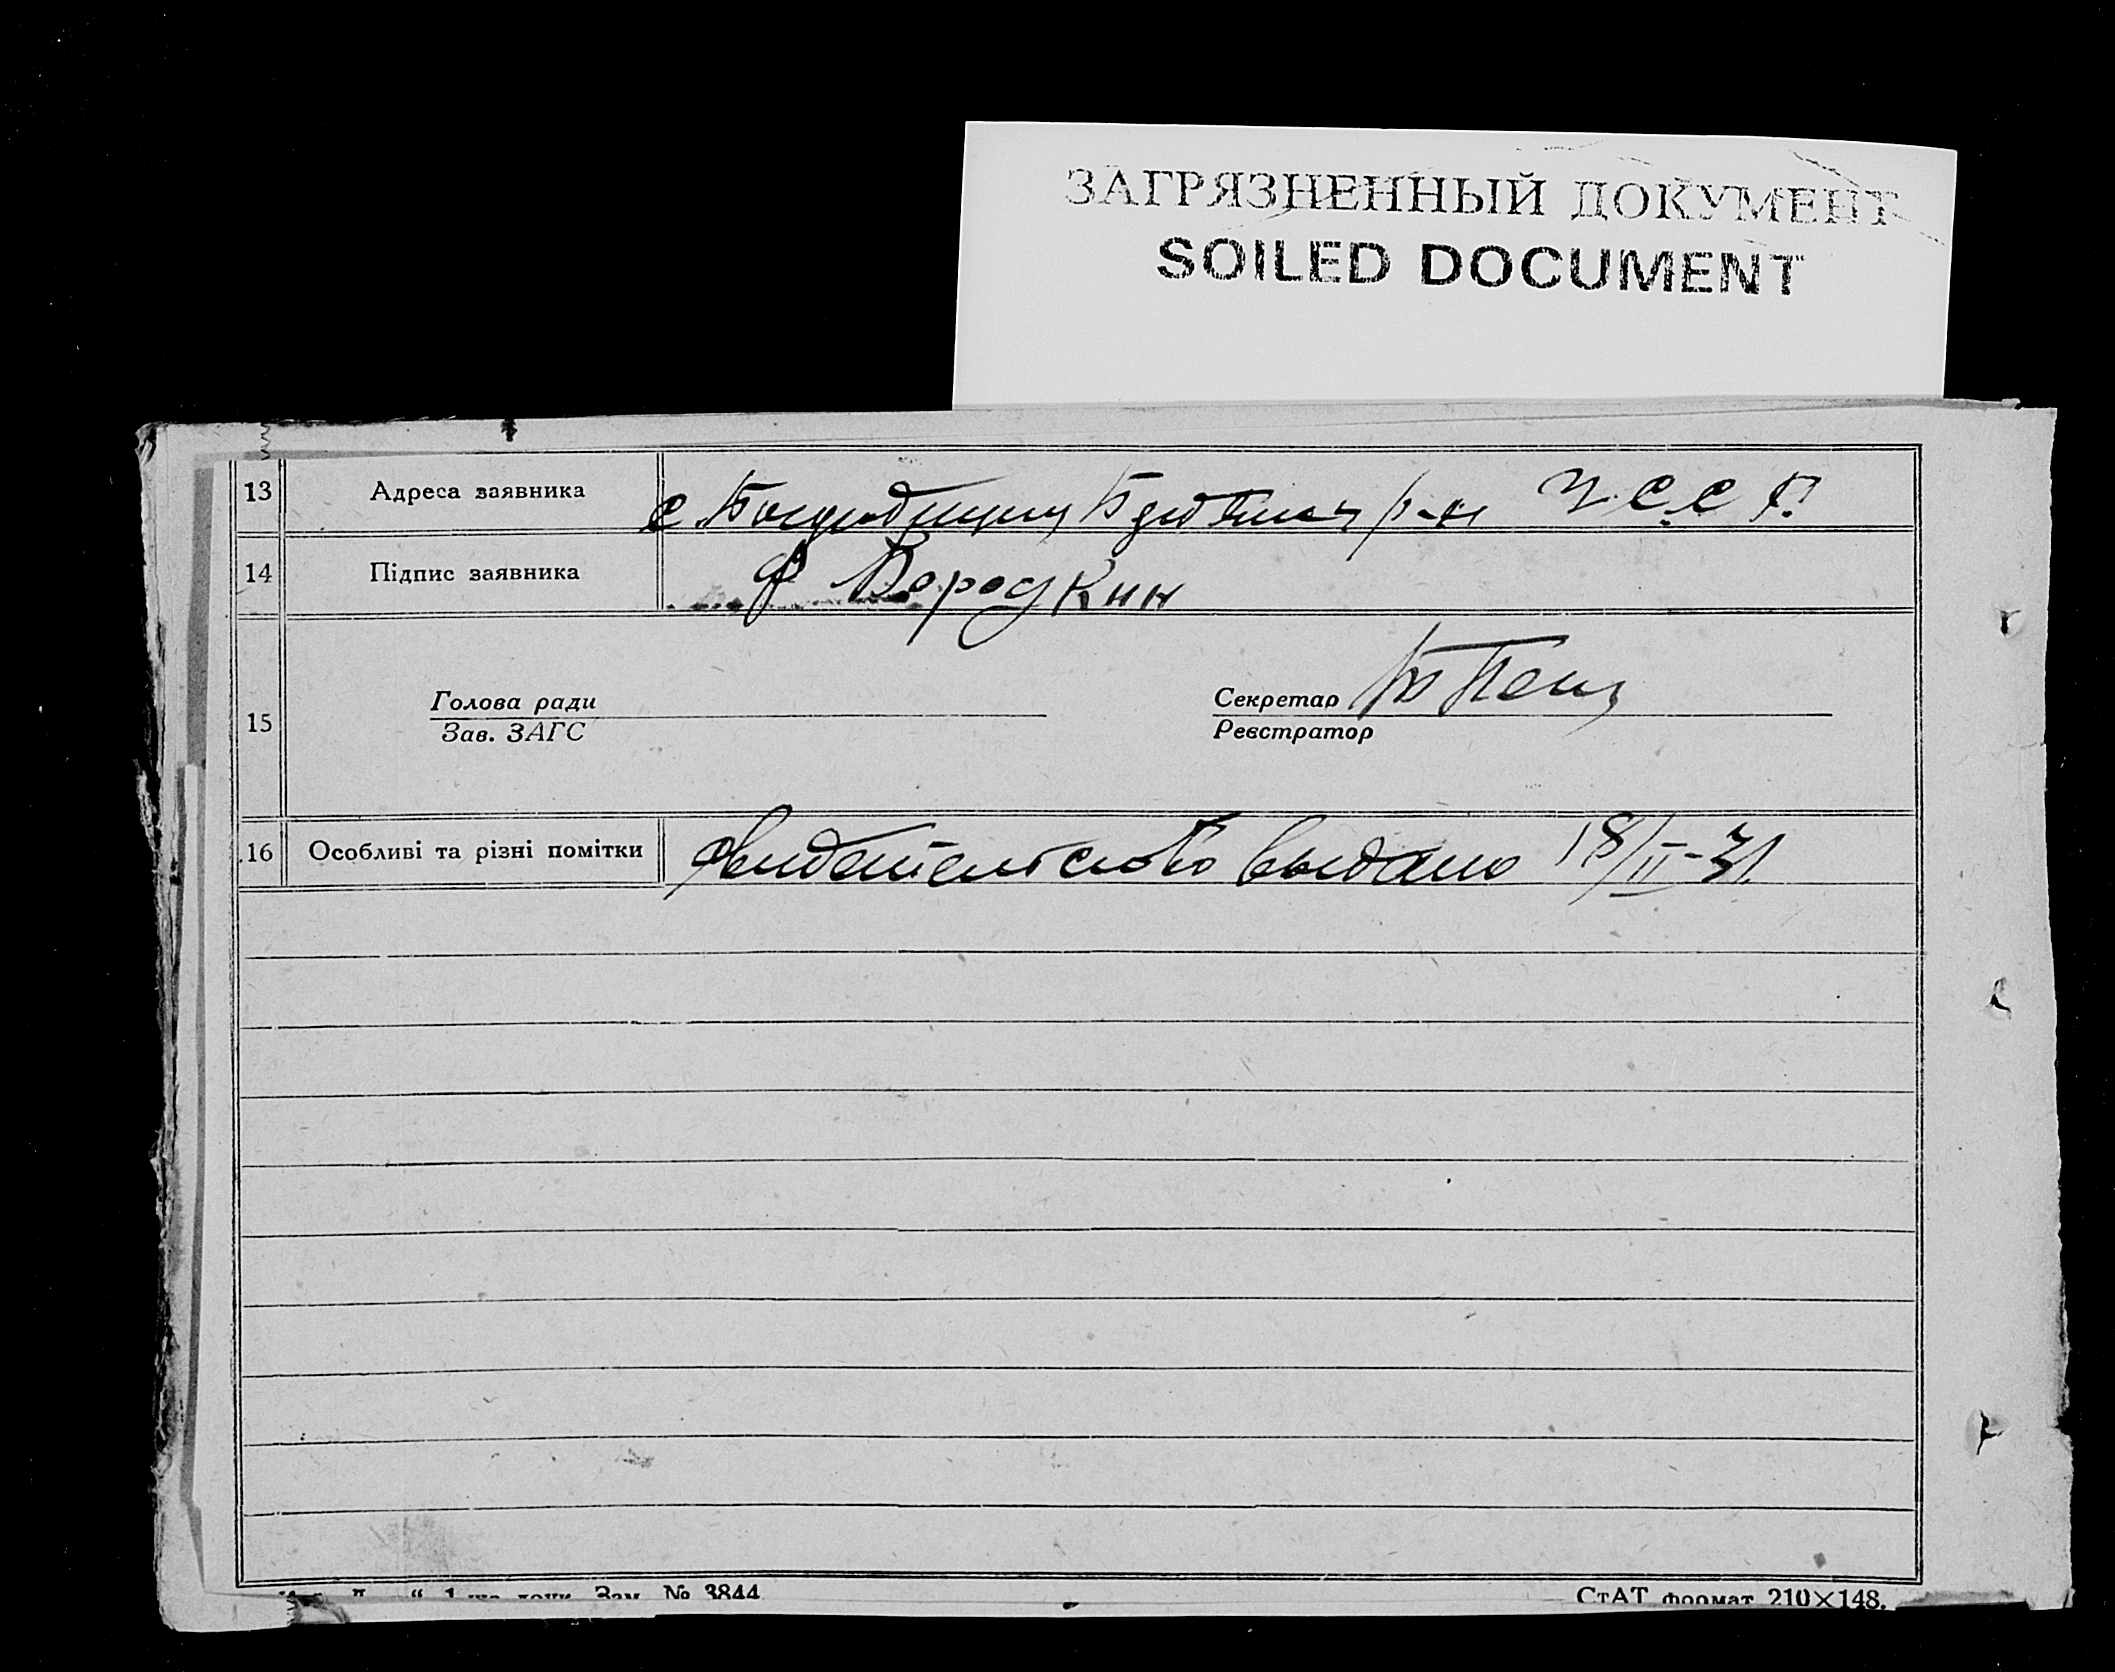 ЗАГРЯЗНЕННЫЙ ДОКУМЕНТ
SOILED DOCUMENT
13 Адреса заявника с. р-н У.С.С.Р.
14 Підпис заявника Ф Вородкин
15 Голова ради Секретар
Зав. ЗАГС Реєстратор
16 Особливі та різні помітки свидетельство выдано 18/II-31.
Зам. № 3844 СтАТ формат 210×148.